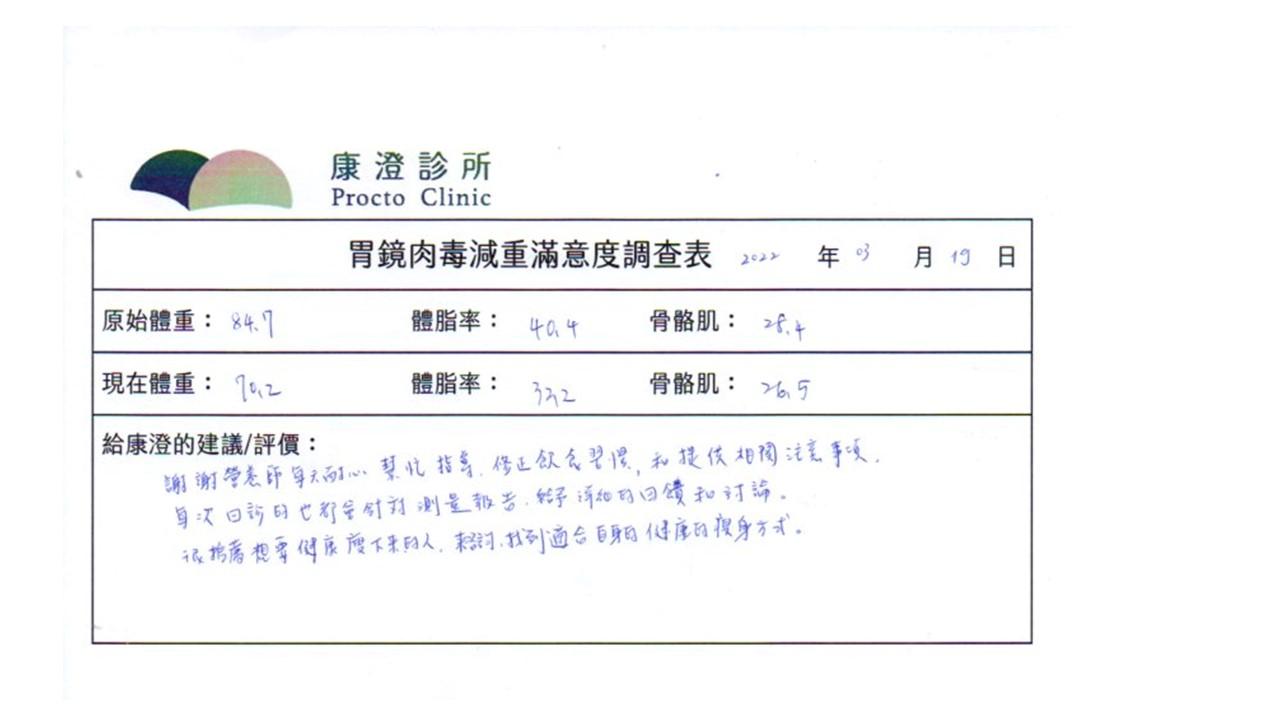 康澄診所
Procto Clinic
胃鏡肉毒減重滿意度調查表 2022 年 03 月 19 日
原始體重：84.7 體脂率：40.4 骨骼肌：28.4
現在體重：70.2 體脂率：33.2 骨骼肌：26.5
給康澄的建議/評價：
謝謝營養師每天耐心幫忙指導、修正飲食習慣，和提供相關注意事項.
每次回診時也都會針對測量報告、給予詳細的回饋和討論。
很推薦想要健康瘦下來的人、來找到適合自身的健康的瘦身方式。